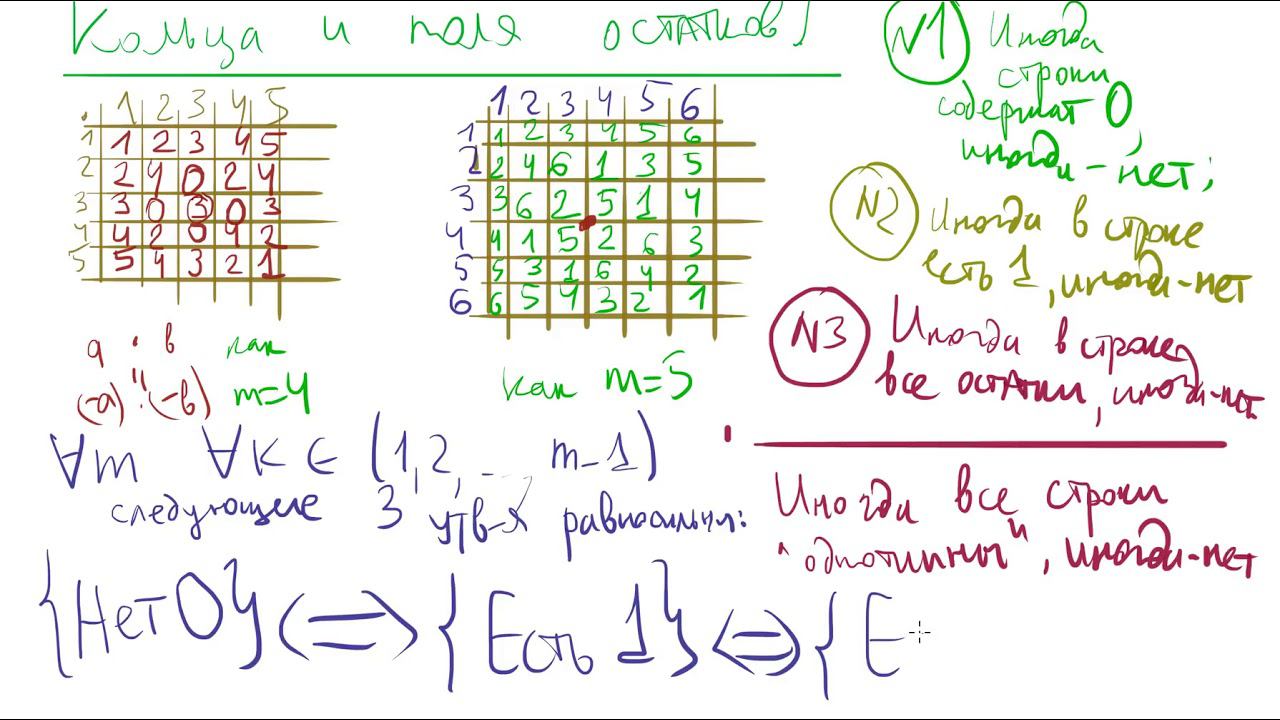 Кольца и поля остатков!
. 1 2 3 4 5
1 1 2 3 4 5
2 2 4 0 2 4
3 3 0 3 0 3
4 4 2 0 4 2
5 5 4 3 2 1
1 2 3 4 5 6
1 1 2 3 4 5 6
2 2 4 6 1 3 5
3 3 6 2 5 1 4
4 4 1 5 2 6 3
5 5 3 1 6 4 2
6 6 5 4 3 2 1
а · в как
(-а) · (-в) m=4
как m=5
N1 Иногда
строки
содержат 0,
иногда - нет;
N2 Иногда в строке
есть 1, иногда - нет
N3 Иногда в строке
все остатки, иногда - нет
Иногда все строки
"однотипны", иногда - нет
∀m ∀k ∈ (1,2, ... m-1)
следующие 3 утв-я равносильны:
{Нет 0} <=> {Есть 1} <=> { Е